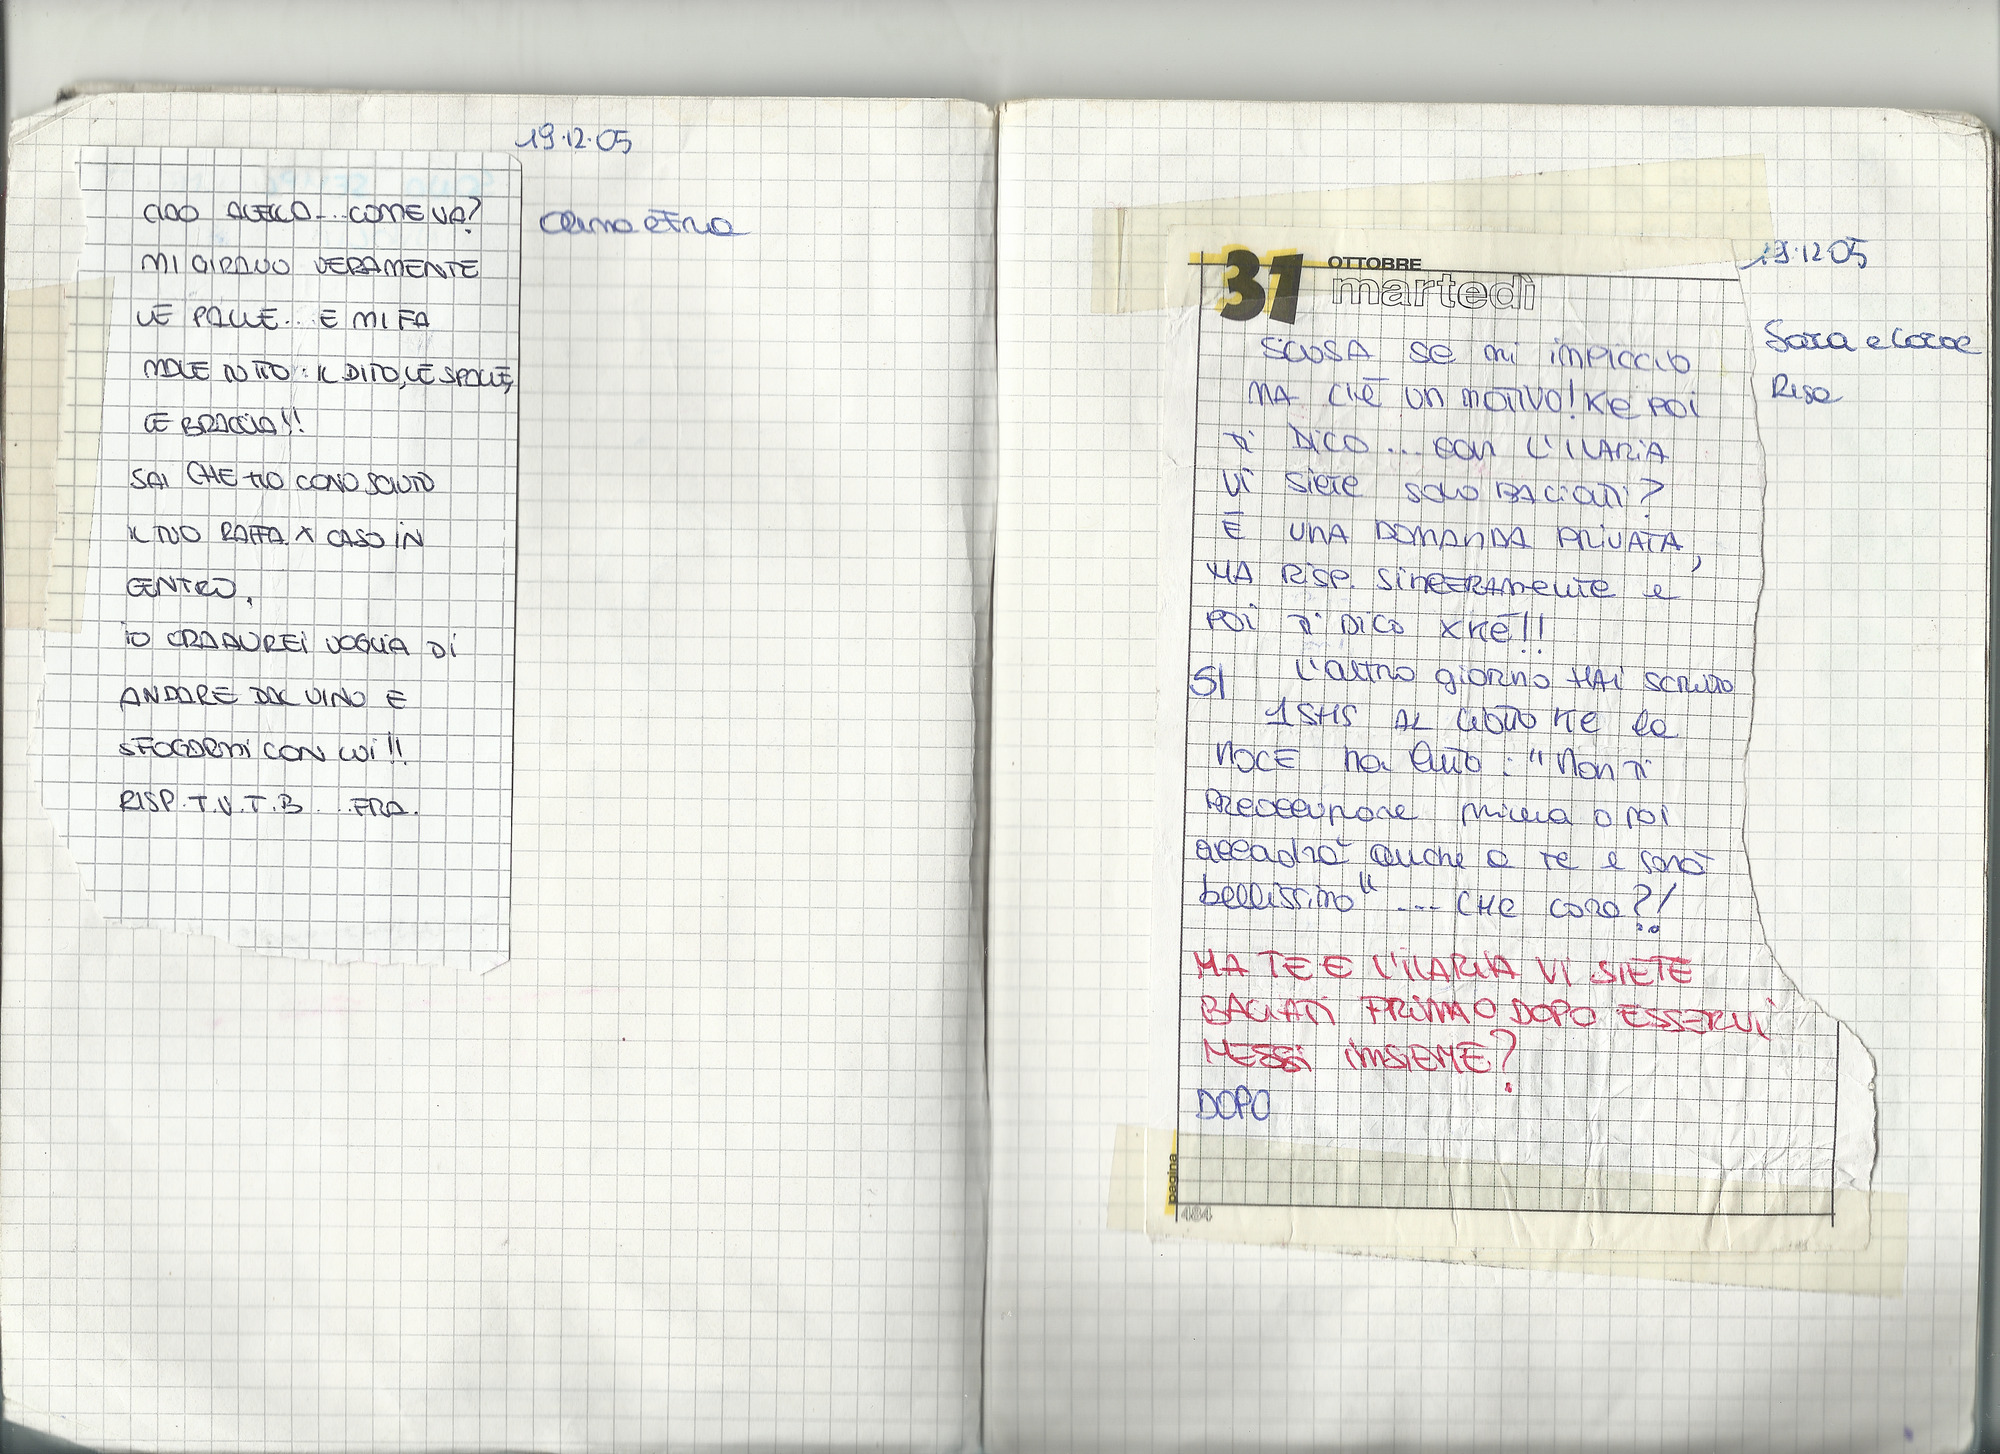 19.12.05
CIAO ... COME VA?
MI GIRANO VERAMENTE
LE PALLE... E MI FA
MALE TUTTO: IL DITO, LE SPALLE,
LE BRACCIA!!
SAI CHE HO CONOSCIUTO
IL TUO RAFFA X CASO IN
CENTRO.
IO ORA AVREI VOGLIA DI
ANDARE DAL VINO E
SFOGARMI CON LUI!!
RISP. T.V.T.B ...FRA.
31 OTTOBRE
martedì
19.12.05
Sara e
Risp
SCUSA SE mi impiccio
MA C'è un motivo! Ke poi
ti DICO... con L'ILARIA
Vi Siete solo BACiati?
È UNA DOMANDA PRIVATA,
MA RISP. SinceRAmente e
poi ti DICO XKé!!
SI
L'altro giorno HAI SCRITTO
1 SMS AL Ke la
ha letto: "Non ti
preoccupare prima o poi
accadrà anche a te e sarà
bellissimo" .... CHE cosa?!
MA TE E L'ILARIA VI SIETE
BACIATI PRIMA O DOPO ESSERVI
MESSI INSIEME?
DOPO
pagina
484